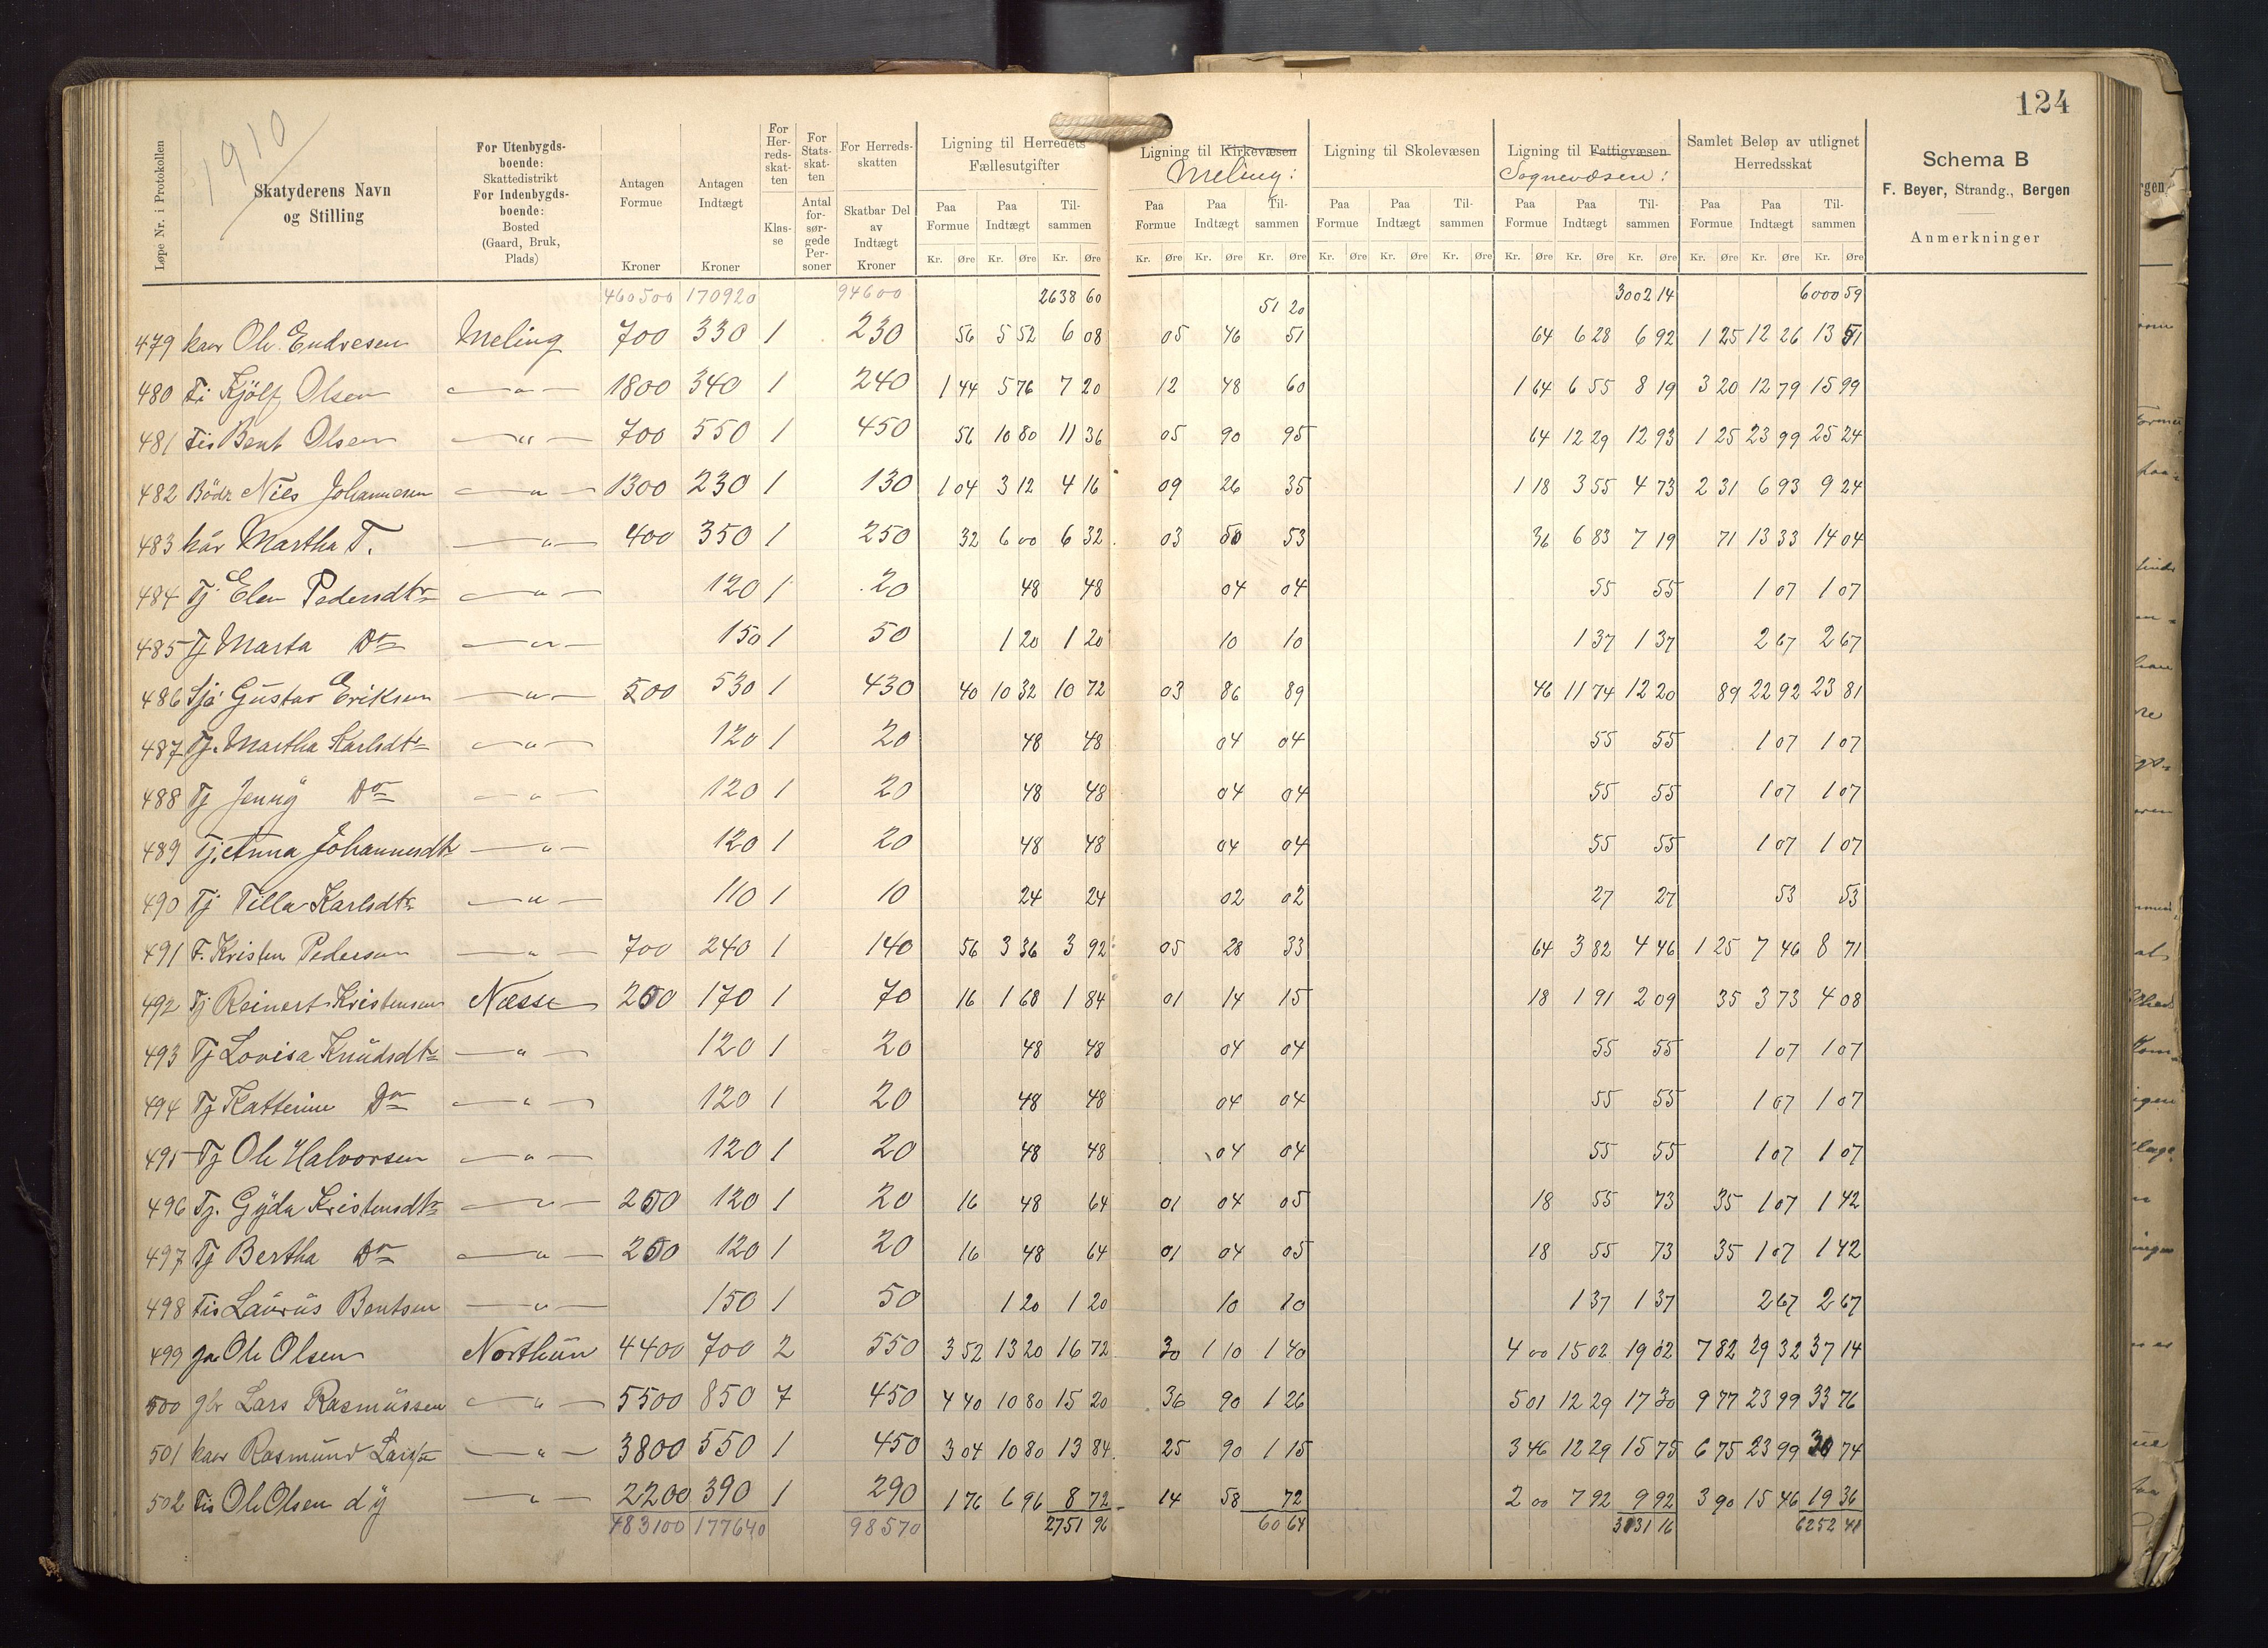 124
1910
Løpe Nr. i Protokollen
Skatyderens Navn og Stilling
For Utenbygdsboende: Skattedistrikt For Indenbygdsboende: Bosted (Gaard, Bruk, Plads)
Antagen Formue Kroner
Antagen Indtægt Kroner
For Herredsskatten Klasse
For Statsskatten Antal forsørgede Personer
For Herredsskatten Skatbar Del av Indtægt Kroner
Ligning til Herredets Fællesutgifter
Ligning til Kirkevæsen Meling:
Ligning til Skolevæsen
Ligning til Fattigvæsen Sognevæsen:
Samlet Beløp av utlignet Herredsskat
Schema B
F. Beyer, Strandg., Bergen
Anmerkninger
Paa Formue Paa Indtægt Tilsammen Paa Formue Paa Indtægt Tilsammen Paa Formue Paa Indtægt Tilsammen Paa Formue Paa Indtægt Tilsammen Paa Formue Paa Indtægt Tilsammen
Kr. Øre Kr. Øre Kr. Øre Kr. Øre Kr. Øre Kr. Øre Kr. Øre Kr. Øre Kr. Øre Kr. Øre Kr. Øre Kr. Øre Kr. Øre Kr. Øre Kr. Øre
460500 170920 94600 2638 60 51 20 3002 14 6000 59
479 kaar Ole Endresen Meling 700 330 1 230 56 5 52 6 08 05 46 51 64 6 28 6 92 1 25 12 26 13 51
480 Fi Kjölf Olsen — " — 1800 340 1 240 1 44 5 76 7 20 12 48 60 1 64 6 55 8 19 3 20 12 79 15 99
481 Fis Bent Olsen — " — 700 550 1 450 56 10 80 11 36 05 90 95 64 12 29 12 93 1 25 23 99 25 24
482 Bödr Nils Johannesen — " — 1300 230 1 130 1 04 3 12 4 16 09 26 35 1 18 3 55 4 73 2 31 6 93 9 24
483 kår Martha T. — " — 400 350 1 250 32 6 00 6 32 03 50 53 36 6 83 7 19 71 13 33 14 04
484 Tj Elen Pedersdtr — " — 120 1 20 48 48 04 04 55 55 1 07 1 07
485 Tj Marta Do — " — 150 1 50 1 20 1 20 10 10 1 37 1 37 2 67 2 67
486 Sjö Gustav Eriksen — " — 500 530 1 430 40 10 32 10 72 03 86 89 46 11 74 12 20 89 22 92 23 81
487 Tj. Martha Karlsdtr — " — 120 1 20 48 48 04 04 55 55 1 07 1 07
488 Tj Jenny Do — " — 120 1 20 48 48 04 04 55 55 1 07 1 07
489 Tj. Anna Johannesdtr — " — 120 1 20 48 48 04 04 55 55 1 07 1 07
490 Tj Tilla Karlsdtr — " — 110 1 10 24 24 02 02 27 27 53 53
491 F. Kristen Pedersen — " — 700 240 1 140 56 3 36 3 92 05 28 33 64 3 82 4 46 1 25 7 46 8 71
492 Tj Reinert Kristensen Næsse 200 170 1 70 16 1 68 1 84 01 14 15 18 1 91 2 09 35 3 73 4 08
493 Tj Lovisa Knudsdtr — " — 120 1 20 48 48 04 04 55 55 1 07 1 07
494 Tj Katterine Do — " — 120 1 20 48 48 04 04 55 55 1 07 1 07
495 Tj Ole Halvorsen — " — 120 1 20 48 48 04 04 55 55 1 07 1 07
496 Tj. Gyda Kristensdtr — " — 200 120 1 20 16 48 64 01 04 05 18 55 73 35 1 07 1 42
497 Tj Bertha Do — " — 200 120 1 20 16 48 64 01 04 05 18 55 73 35 1 07 1 42
498 Fis Laurus Bentsen — " — 150 1 50 1 20 1 20 10 10 1 37 1 37 2 67 2 67
499 Ole Olsen Northun 4400 700 2 550 3 52 13 20 16 72 30 1 10 1 40 4 00 15 02 19 02 7 82 29 32 37 14
500 gbr Lars Rasmussen — " — 5500 850 7 450 4 40 10 80 15 20 36 90 1 26 5 01 12 29 17 30 9 77 23 99 33 76
501 kaar Rasmund — " — 3800 550 1 450 3 04 10 80 13 84 25 90 1 15 3 46 12 29 15 75 6 75 23 99 30 74
502 Fis Ole Olsen d y — " — 2200 390 1 290 1 76 6 96 8 72 14 58 72 2 00 7 92 9 92 3 90 15 46 19 36
483100 177640 98570 2751 96 60 64 3131 16 6252 41